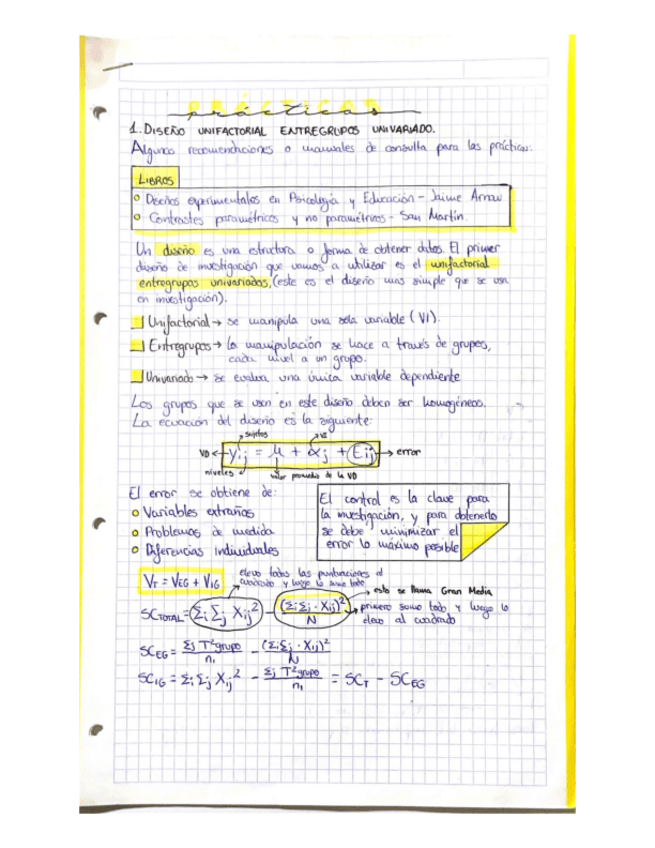 PRÁCTICAS
prácticas
1. DISEÑO UNIFACTORIAL ENTREGRUPOS UNIVARIADO.
Algunas recomendaciones o manuales de consulta para las prácticas:
LIBROS
Diseños experimentales en Psicología y Educación - Jaime Arnau
Contrastes paramétricos y no paramétricos - San Martín.
Un diseño es una estructura o forma de obtener datos. El primer
diseño de investigación que vamos a utilizar es el unifactorial
entregrupos univariados, (este es el diseño mas simple que se usa
en investigación).
Unifactorial → se manipula una sola variable (VI).
Entregrupos → la manipulación se hace a través de grupos,
cada nivel a un grupo.
Univariado → se evalua una única variable dependiente
Los grupos que se usan en este diseño deben ser homogéneos.
La ecuación del diseño es la siguiente:
sujetos VI
VD ← yij = μ + αj + Eij → error
niveles valor promedio de la VD
El error se obtiene de:
Variables extrañas
Problemas de medida
Diferencias Individuales
El control es la clave para
la investigación, y para obtenerlo
se debe minimizar el
error lo máximo posible
VT = VEG + VIG
elevo todas las puntuaciones al
cuadrado y luego lo sumo todo
esto se llama Gran Media
SCTOTAL = Σi Σj Xij² - (Σi Σj · Xij)² / N
primero sumo todo y luego lo
elevo al cuadrado
SCEG = Σj T²grupo / n, - (Σi Σj · Xij)² / N
SCIG = Σi Σj Xij² - Σj T²grupo / n, = SCT - SCEG